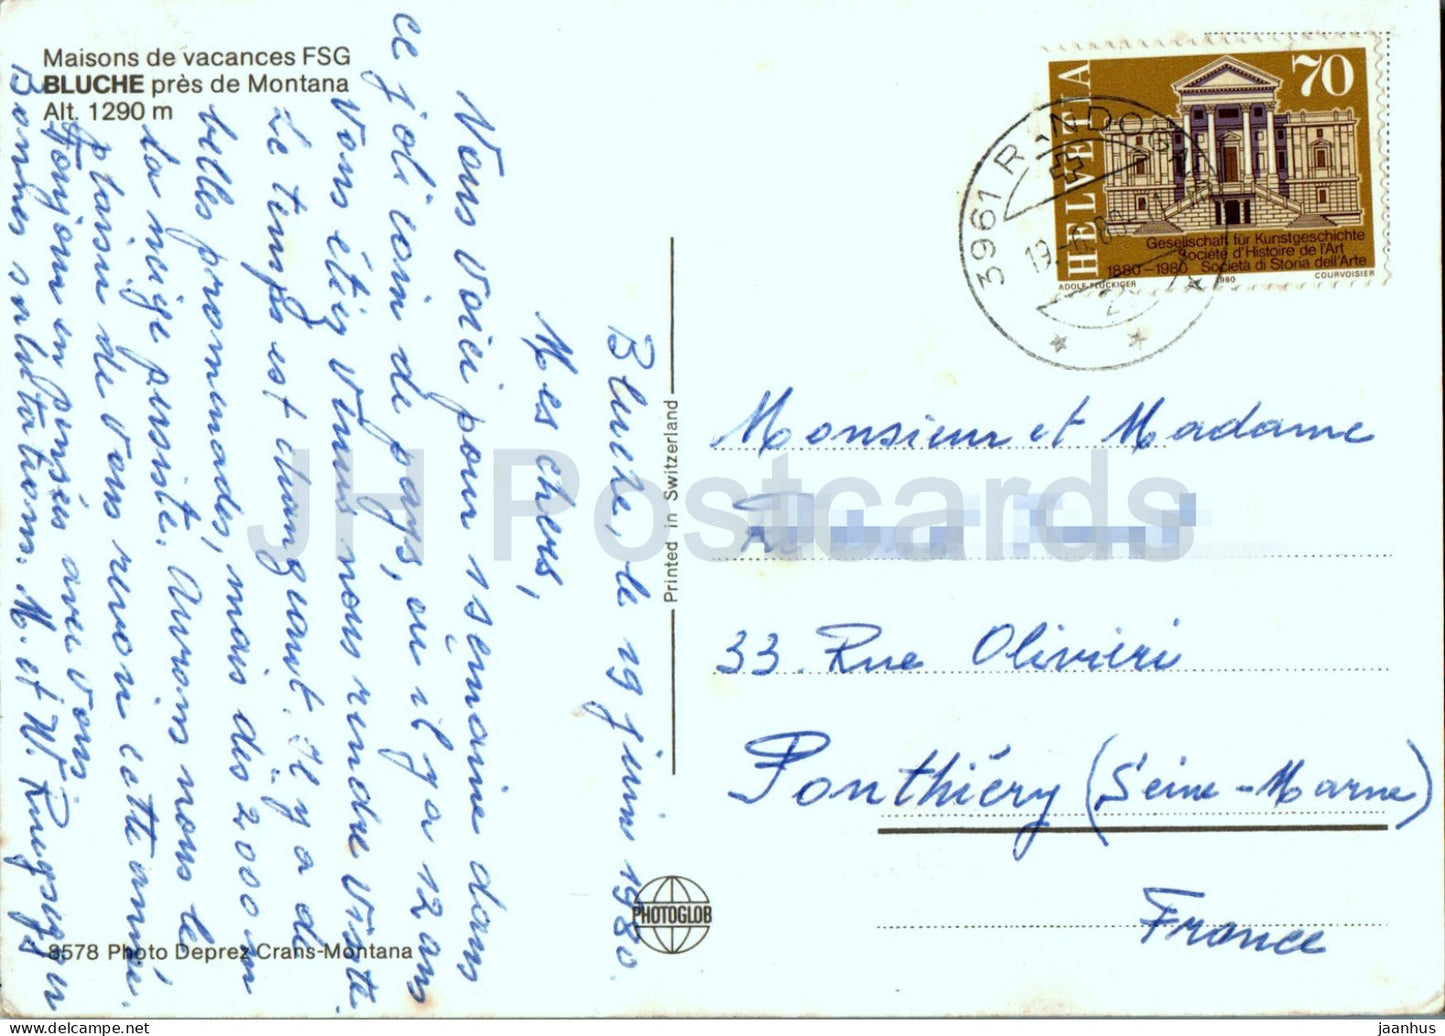 Maisons de vacances FSG
BLUCHE près de Montana
Alt. 1290 m
Bluche, le 19 juin 1980.
Mes chers,
Vous voici pour 1 semaine dans
ce joli coin de pays, où il y a 12 ans
vous étiez venus nous rendre visite.
Le temps est changeant. Il y a de
belles promenades, mais dès 2000 m
la neige persiste. Aurons-nous le
plaisir de vous revoir cette année.
Toujours en pensées avec vous
Bonnes salutations. M. et W.
8578 Photo Deprez Crans-Montana
Printed in Switzerland
PHOTOGLOB
HELVETIA
70
Gesellschaft für Kunstgeschichte
Société d'Histoire de l'Art
1880–1980 Società di Storia dell'Arte
ADOLF FLÜCKIGER 1980 COURVOISIER
3961 RANDOGNE
19.-6.80
2
Monsieur et Madame
33 Rue Olivieri
Ponthiéry (Seine-Marne)
France
JH Postcards
jaanhus | delcampe.net